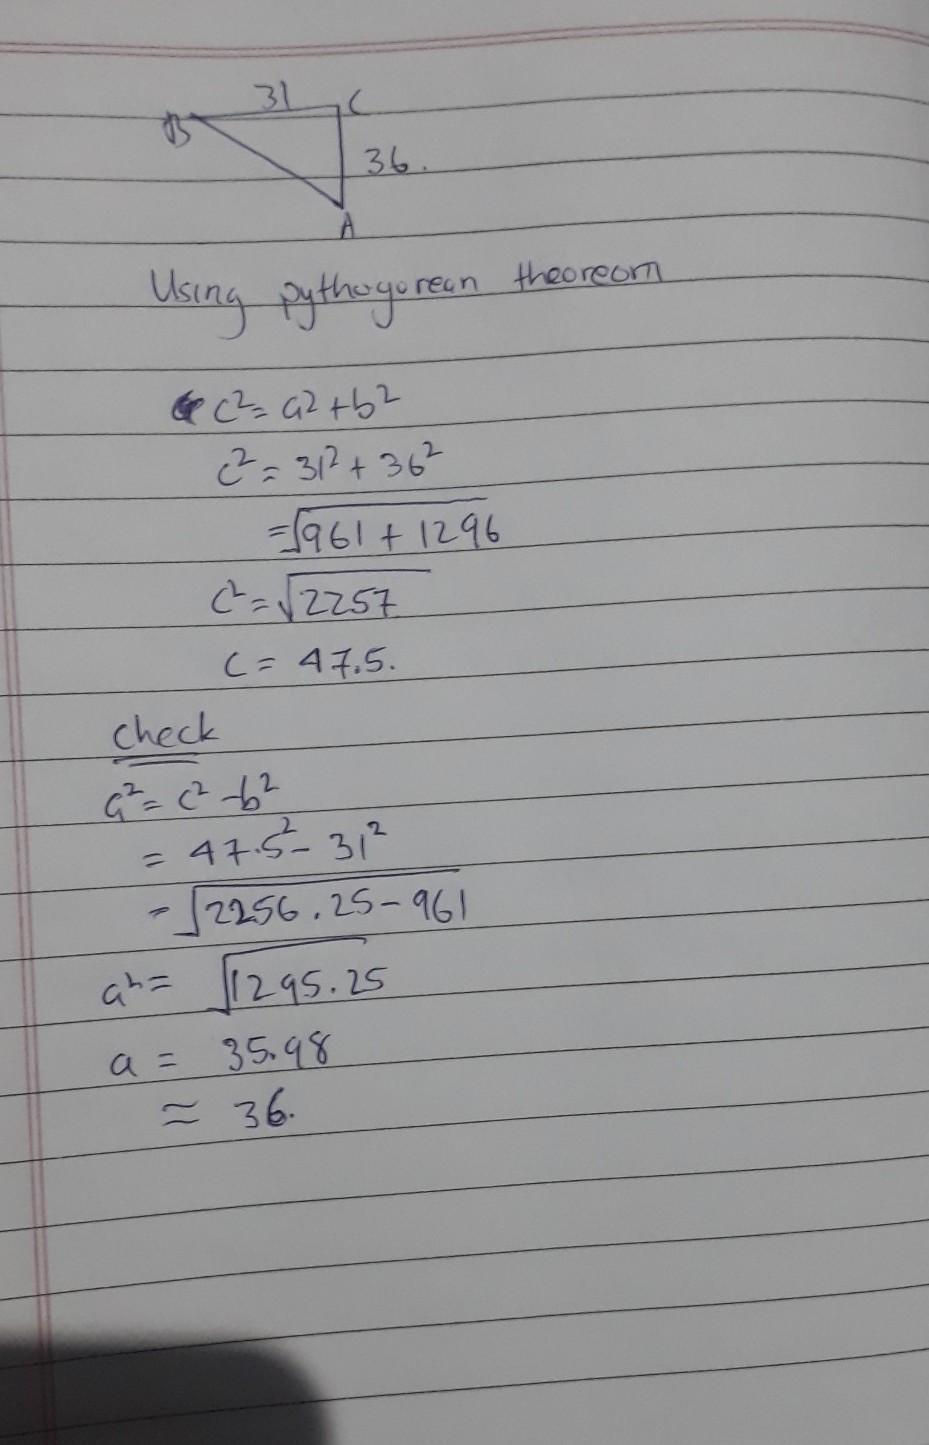 31
B
C
36.
A
Using pythogorean theoreom
c²= a² + b²
c² = 31² + 36²
=√961 + 1296
c² = √2257
c = 47.5.
Check
a² = c² - b²
= 47.5² - 31²
= √2256.25 - 961
a² = √1295.25
a = 35.98
≈ 36.